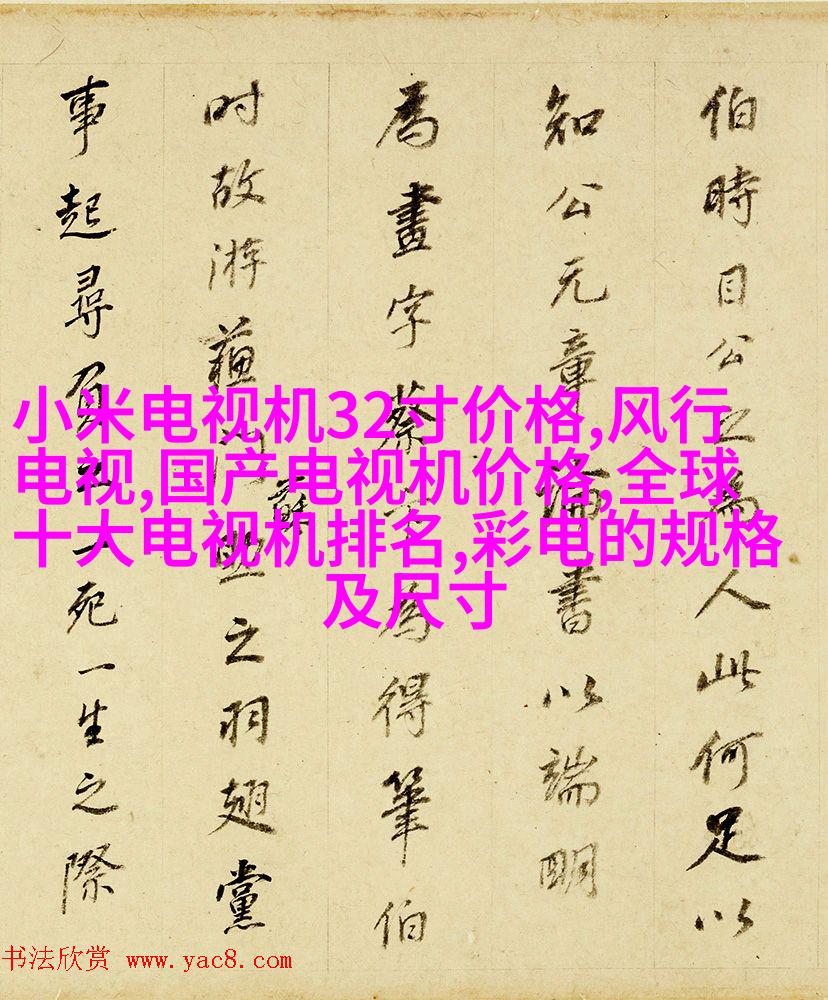 伯時目公之為人此何足以
知公元章論書以端明
為畫字蔡為得筆伯
時故游蘓門與之羽翅黨
蘇
事起尋一死一生之際
小米电视机32寸价格,风行
电视,国产电视机价格,全球
十大电视机排名,彩电的规格
及尺寸
书法欣赏 www.yac8.com